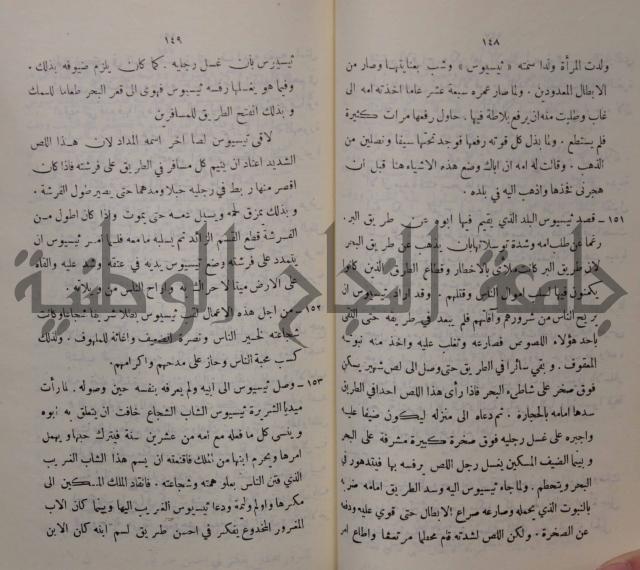 ١٤٨
ولدت المرأة ولدا سمته « ثيسيوس » وشب بعنايتها وصار من
الابطال المعدودين . ولما صار عمره سبعة عشر عاما اخذته امه الى
غاب وطلبت منه ان يرفع بلاطة فيها . حاول رفعها مرات كثيرة
فلم يستطع . ولما بذل كل قوته رفعها فوجد تحتها سيفا ونصلين من
الذهب . وقالت له امه ان اباك وضع هذه الاشياء هنا قبل أن
هجرني فخذها واذهب اليه في بلده .
١٥١ – قصد ثيسيوس البلد الذي يقيم فيها ابوه عن طريق البر .
رغما عن طلب امه وشدة توسلاتها بان يذهب عن طريق البحر
لان طريق البر كانت ملأى بالاخطار وقطاع الطرق الذين كانوا
يكمنون فيها لسلب اموال الناس وقتلهم . وقد اراد ثيسيوس ان
يريح الناس من شرورهم وآثامهم فلم يبعد في طريقه حتى التقى
بأحد هؤلاء اللصوص فصارعه وتغلب عليه واخذ منه نبوته
المعقوف . وبقي سائرا في الطريق حتى وصل الى لص شهير يسكن
فوق صخر على شاطىء البحر فاذا رأى هذا اللص احدا في الطريق
سدها امامه بالحجارة . ثم دعاه الى منزله ليكون ضيفا عليه
واجبره على غسل رجليه فوق صخرة كبيرة مشرفة على البحر
وبينما الضيف المسكين يغسل رجل اللص يرفسه بها فيتدهور في
البحر ويتحطم . ولما جاء ثيسيوس اليه وسد الطريق امامه ضربه
بالنبوت الذي يحمله وصارعه صراع الابطال حتى قوي عليه ودفعه
عن الصخرة . ولكن اللص لشدته قام محطما مرتعشا واطاع امر
١٤٩
ثيسيوس بأن غسل رجليه . كما كان يلزم ضيوفه بذلك .
وفيما هو يغسلها رفسه ثيسيوس فهوى الى قعر البحر طعاما للسمك
وبذلك انفتح الطريق للمسافرين
لاقى ثيسيوس لصا آخر اسمه المداد لان هذا اللص
الشديد اعتاد ان ينيم كل مسافر في الطريق على فرشته فاذا كان
اقصر منها ربط في رجليه حبلا ومدهما حتى يصير طول الفرشة .
وبذلك يمزق لحمه ويسيل دمه حتى يموت واذا كان اطول من
الفرشة قطع القسم الزائد ثم يسلبه ما معه فلما أمر ثيسيوس ان
يتمدد على فرشته وضع ثيسيوس يديه في عنقه وشد عليه والقاه
على الارض ميتا لا حراك به وأراح الناس من ويلاته .
١٥٢ – من اجل هذه الاعمال لقب ثيسيوس بطلا شريفا شجاعا وكانت
شجاعته لخير الناس ونصرة الضعيف واغاثة للملهوف . ولذلك
كسب محبة الناس وحاز على مدحهم واكرامهم .
١٥٣ – وصل ثيسيوس الى ابيه ولم يعرفه بنفسه حين وصوله . لما رأت
ميديا الشريرة ثيسيوس الشاب الشجاع خافت ان يتعلق به ابوه
وينسى كل ما فعله مع امه من عشرين سنة فيترك حبها ويهمل
امرها ويحرم ابنها من الملك فاقنعته ان يسم هذا الشاب الغريب
الذي فتن الناس بعلو همته وشجاعته . فانقاد الملك المسكين الى
مكرها واولم وليمة ودعا ثيسيوس الغريب اليها وبينما كان الاب
المغرور المخدوع يفكر في احسن طريق لسم ابنه كان الابن
جامعة النجاح الوطنية